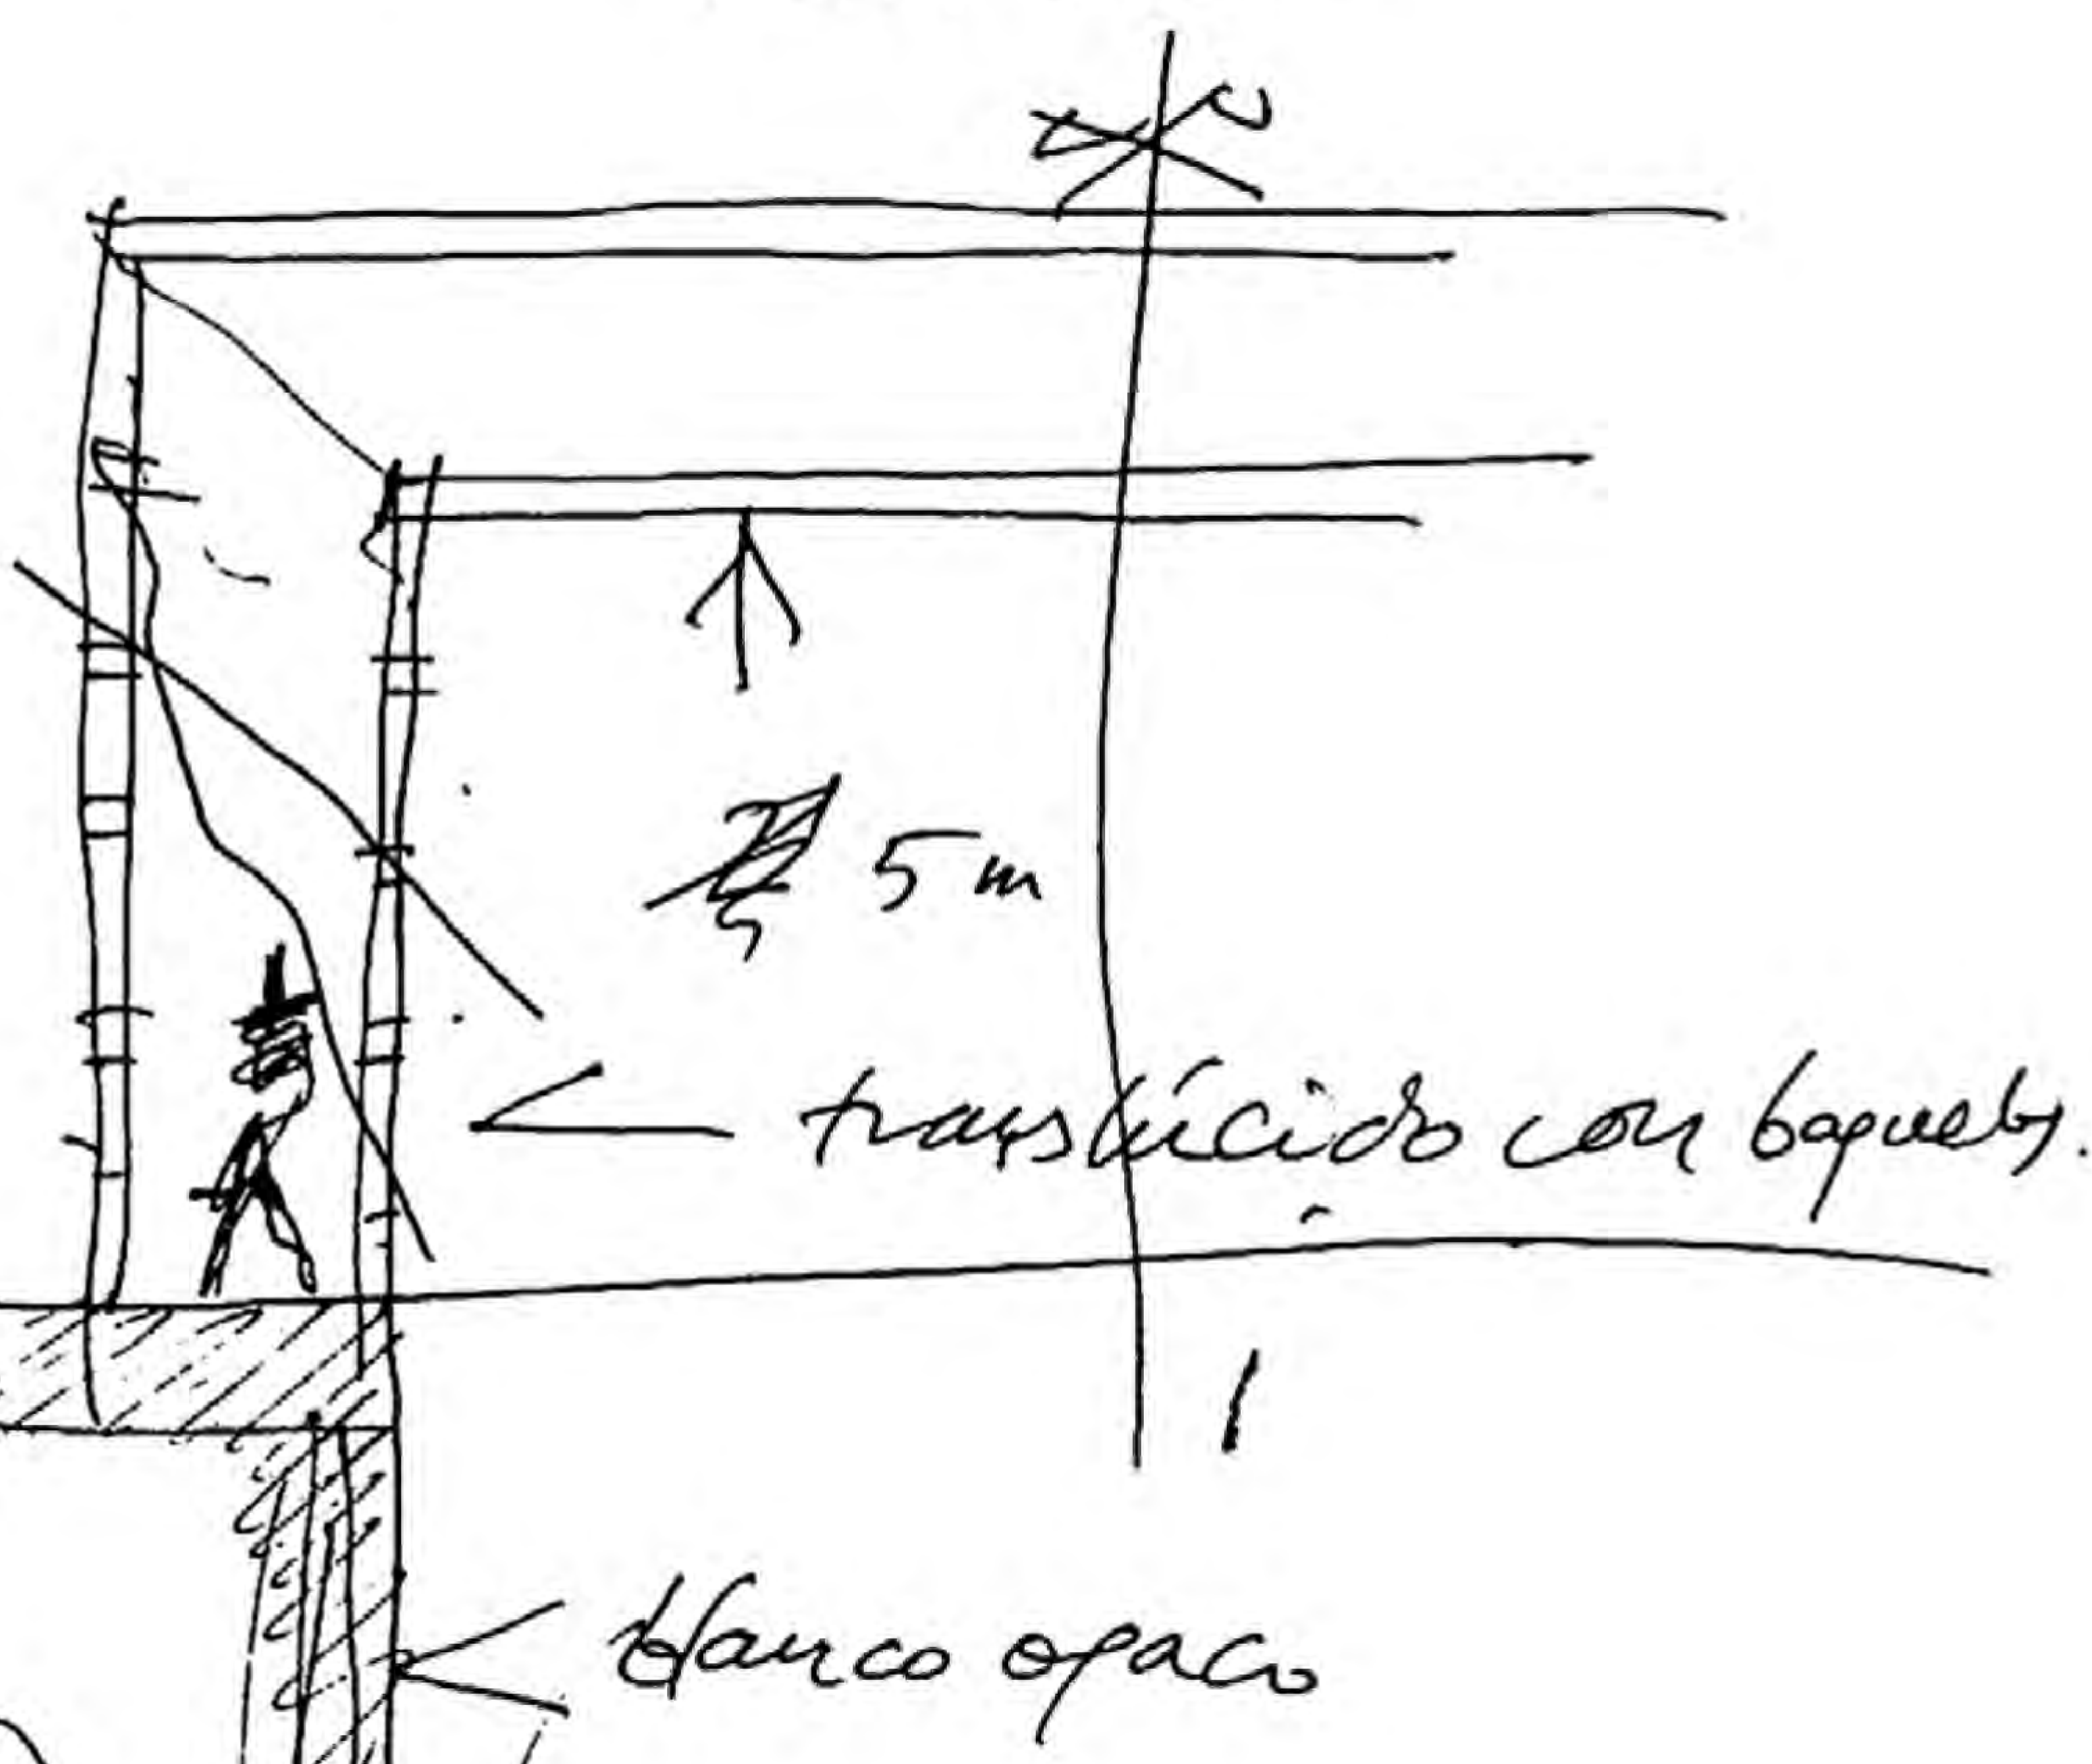 5 m
translúcido con baquetas.
blanco opaco